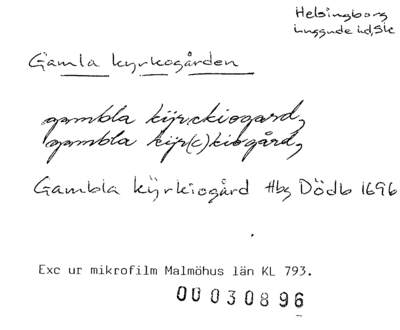 Helsingborg
Luggude hd, Sk
Gamla kyrkogården
gambla kijrckiogard,
gambla kijr(c)kiogård,
Gambla kÿrkiogård Hbg Dödb 1696
Exc ur mikrofilm Malmöhus län KL 793.
00030896